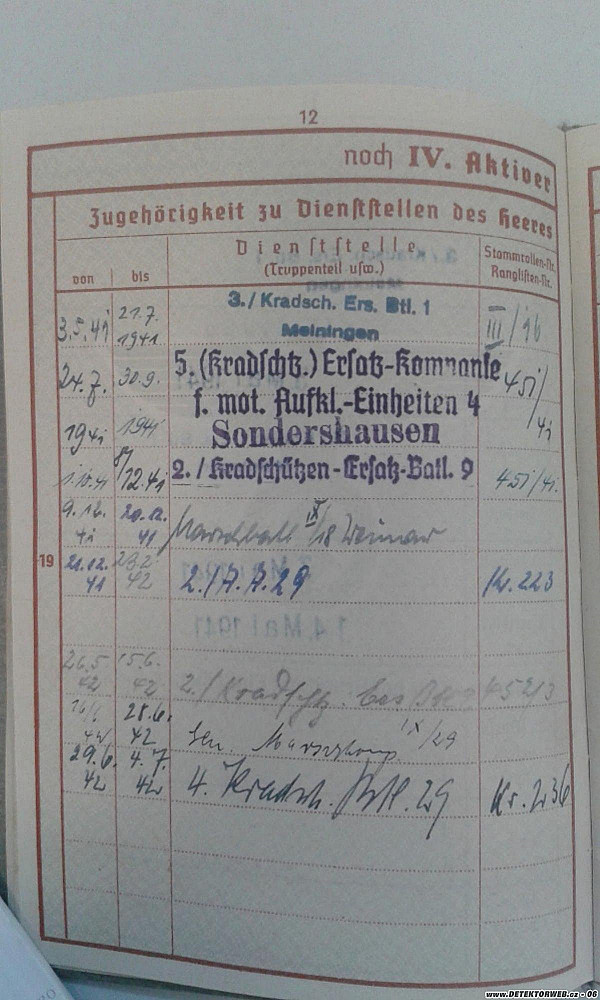 12
noch IV. Aktiver
Zugehörigkeit zu Dienststellen des Heeres
von bis Dienststelle (Truppenteil usw.) Stammrollen-Nr. Ranglisten-Nr.
3.5.41 21.7. 1941 3./Kradsch. Ers. Btl. 1 Meiningen III/96
24.7. 1941 30.9. 1941 5. (Kradschtz.) Ersatz-Kompanie 451/41
f. mot. Aufkl.-Einheiten 4
Sondershausen
1.10.41 8/12.41 2./Kradschützen-Ersatz-Batl. 9 451/41.
9.12. 41 20.12. 41 Marschbatl IX/18 Weimar
19 21.12. 41 28.2. 42 2./A.A.29 Nr. 223
14. Mai 1941
26.5 42 15.6. 42 2./Kradschtz.
28.6. 42 Gen. Marschkomp. IX/29
29.6. 42 4.7. 42 4. Kradsch. Btl. 29 Nr. 236
www.DETEKTORWEB.cz - 06